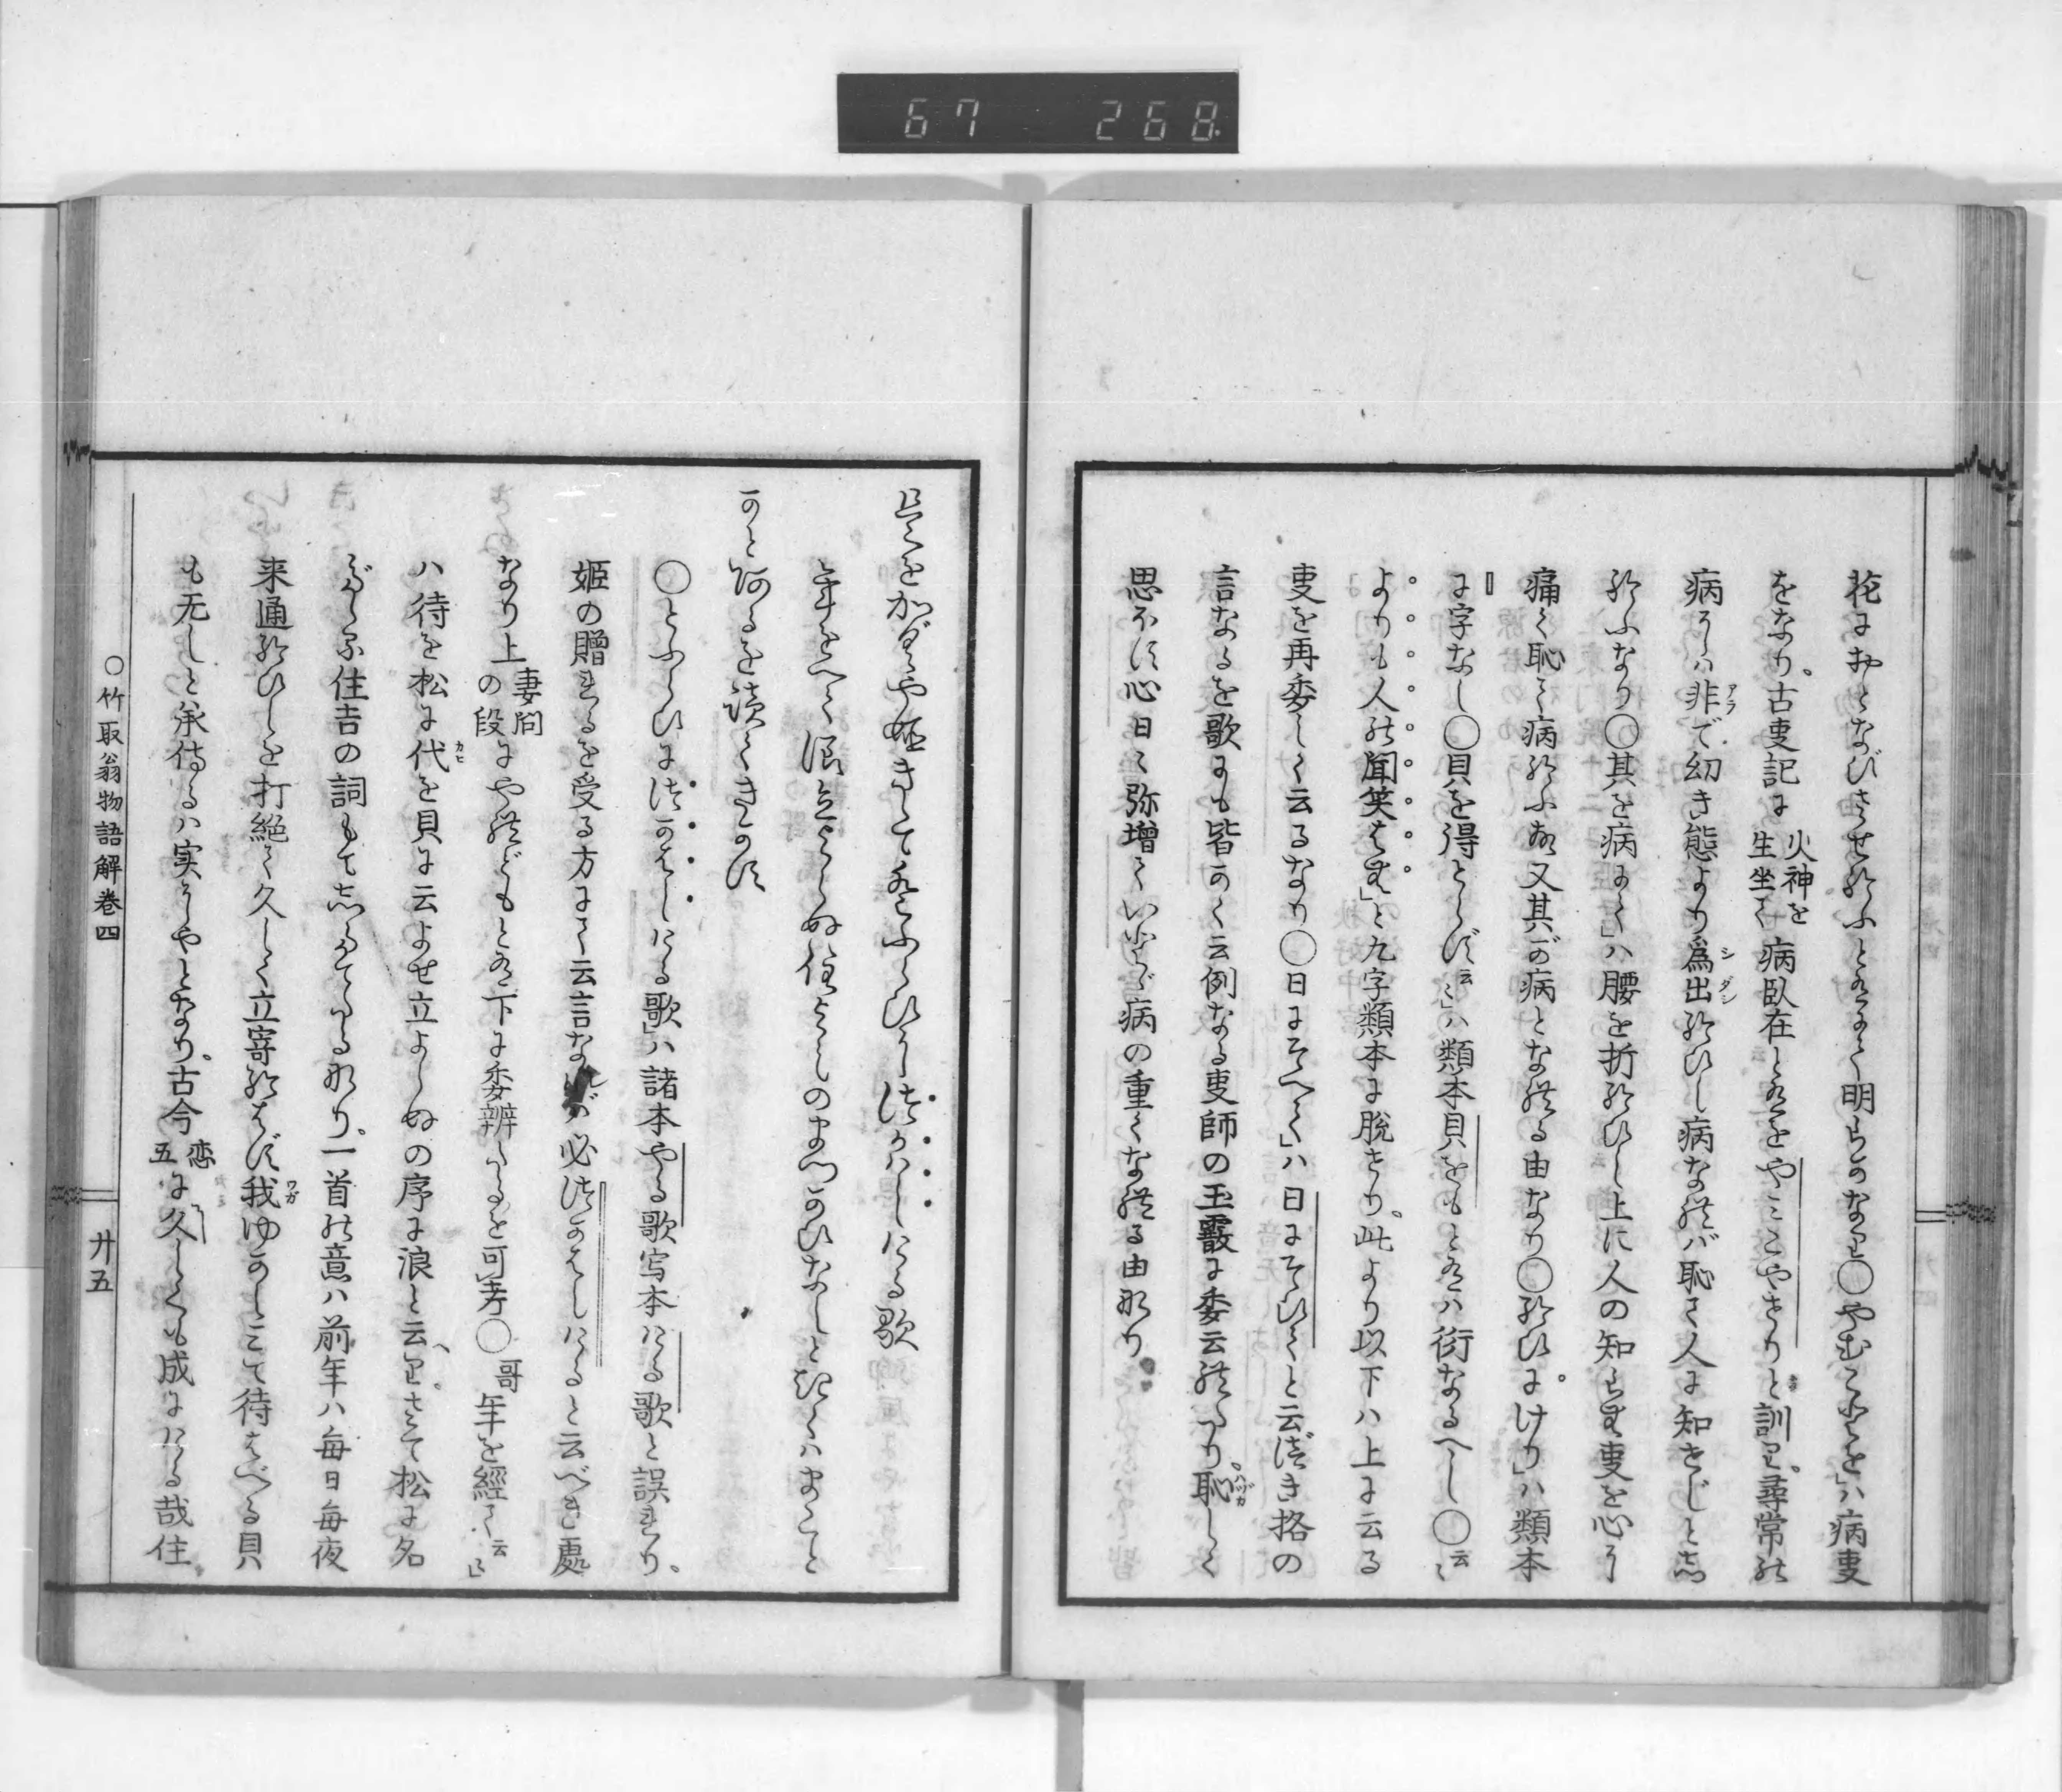 67 268
花におとなびさせ給ふとあるにて明らかなり○やむことを」ハ病叓
をなり。古叓記に火神を生坐て病臥在とあるをやミこやせりと訓り。尋常の
病にハ非で幼き態より爲出給ひし病なれバ恥て人に知せじとし
給ふなり○其を病にて」ハ腰を折給ひし上に人の知らむ叓を心に
痛く恥て病給ふ故又其が病となれる由なり○給ひにけり」ハ類本
に字なし○貝を得とらず云〻」ハ類本貝をもとあるハ衍なるへし○云〻
よりも人の聞笑はむ」と九字類本に脱せり、此より以下ハ上に云る
叓を再委しく云るなり○日にそへて」ハ日にそひてと云づき格の
言なるを歌にも皆かく云例なる叓師の玉霰に委云れたり。恥しく
思ほす心日〻弥増て、いとゞ病の重くなれる由なり
是をかぐや姫きゝてとふらひにつかはしける歌
年をへて浪立よらぬ住よしのまつかひなしときくハまこと
かとあるを讀てきかす
○とふらひにつかはしける歌」ハ諸本やる歌写本ける歌と誤れり。
姫の贈れるを受る方にて云言なれバ必つかはしけると云べき處
なり上妻問の段にやれどもとある下に委辨たるを可考○哥年を經て云〻」
ハ待を松に代を貝に云よせ立よらぬの序に浪と云へり。さて松に名
だゝる住吉の詞もて志たてたるなり。一首の意ハ前年ハ毎日毎夜
来通給ひしを打絶て久しく立寄給はず我ゆかしミて待はべる貝
も无しと承侍るハ実にやとなり。古今恋五に久しくも成にける哉住
○竹取翁物語解卷四
廾五